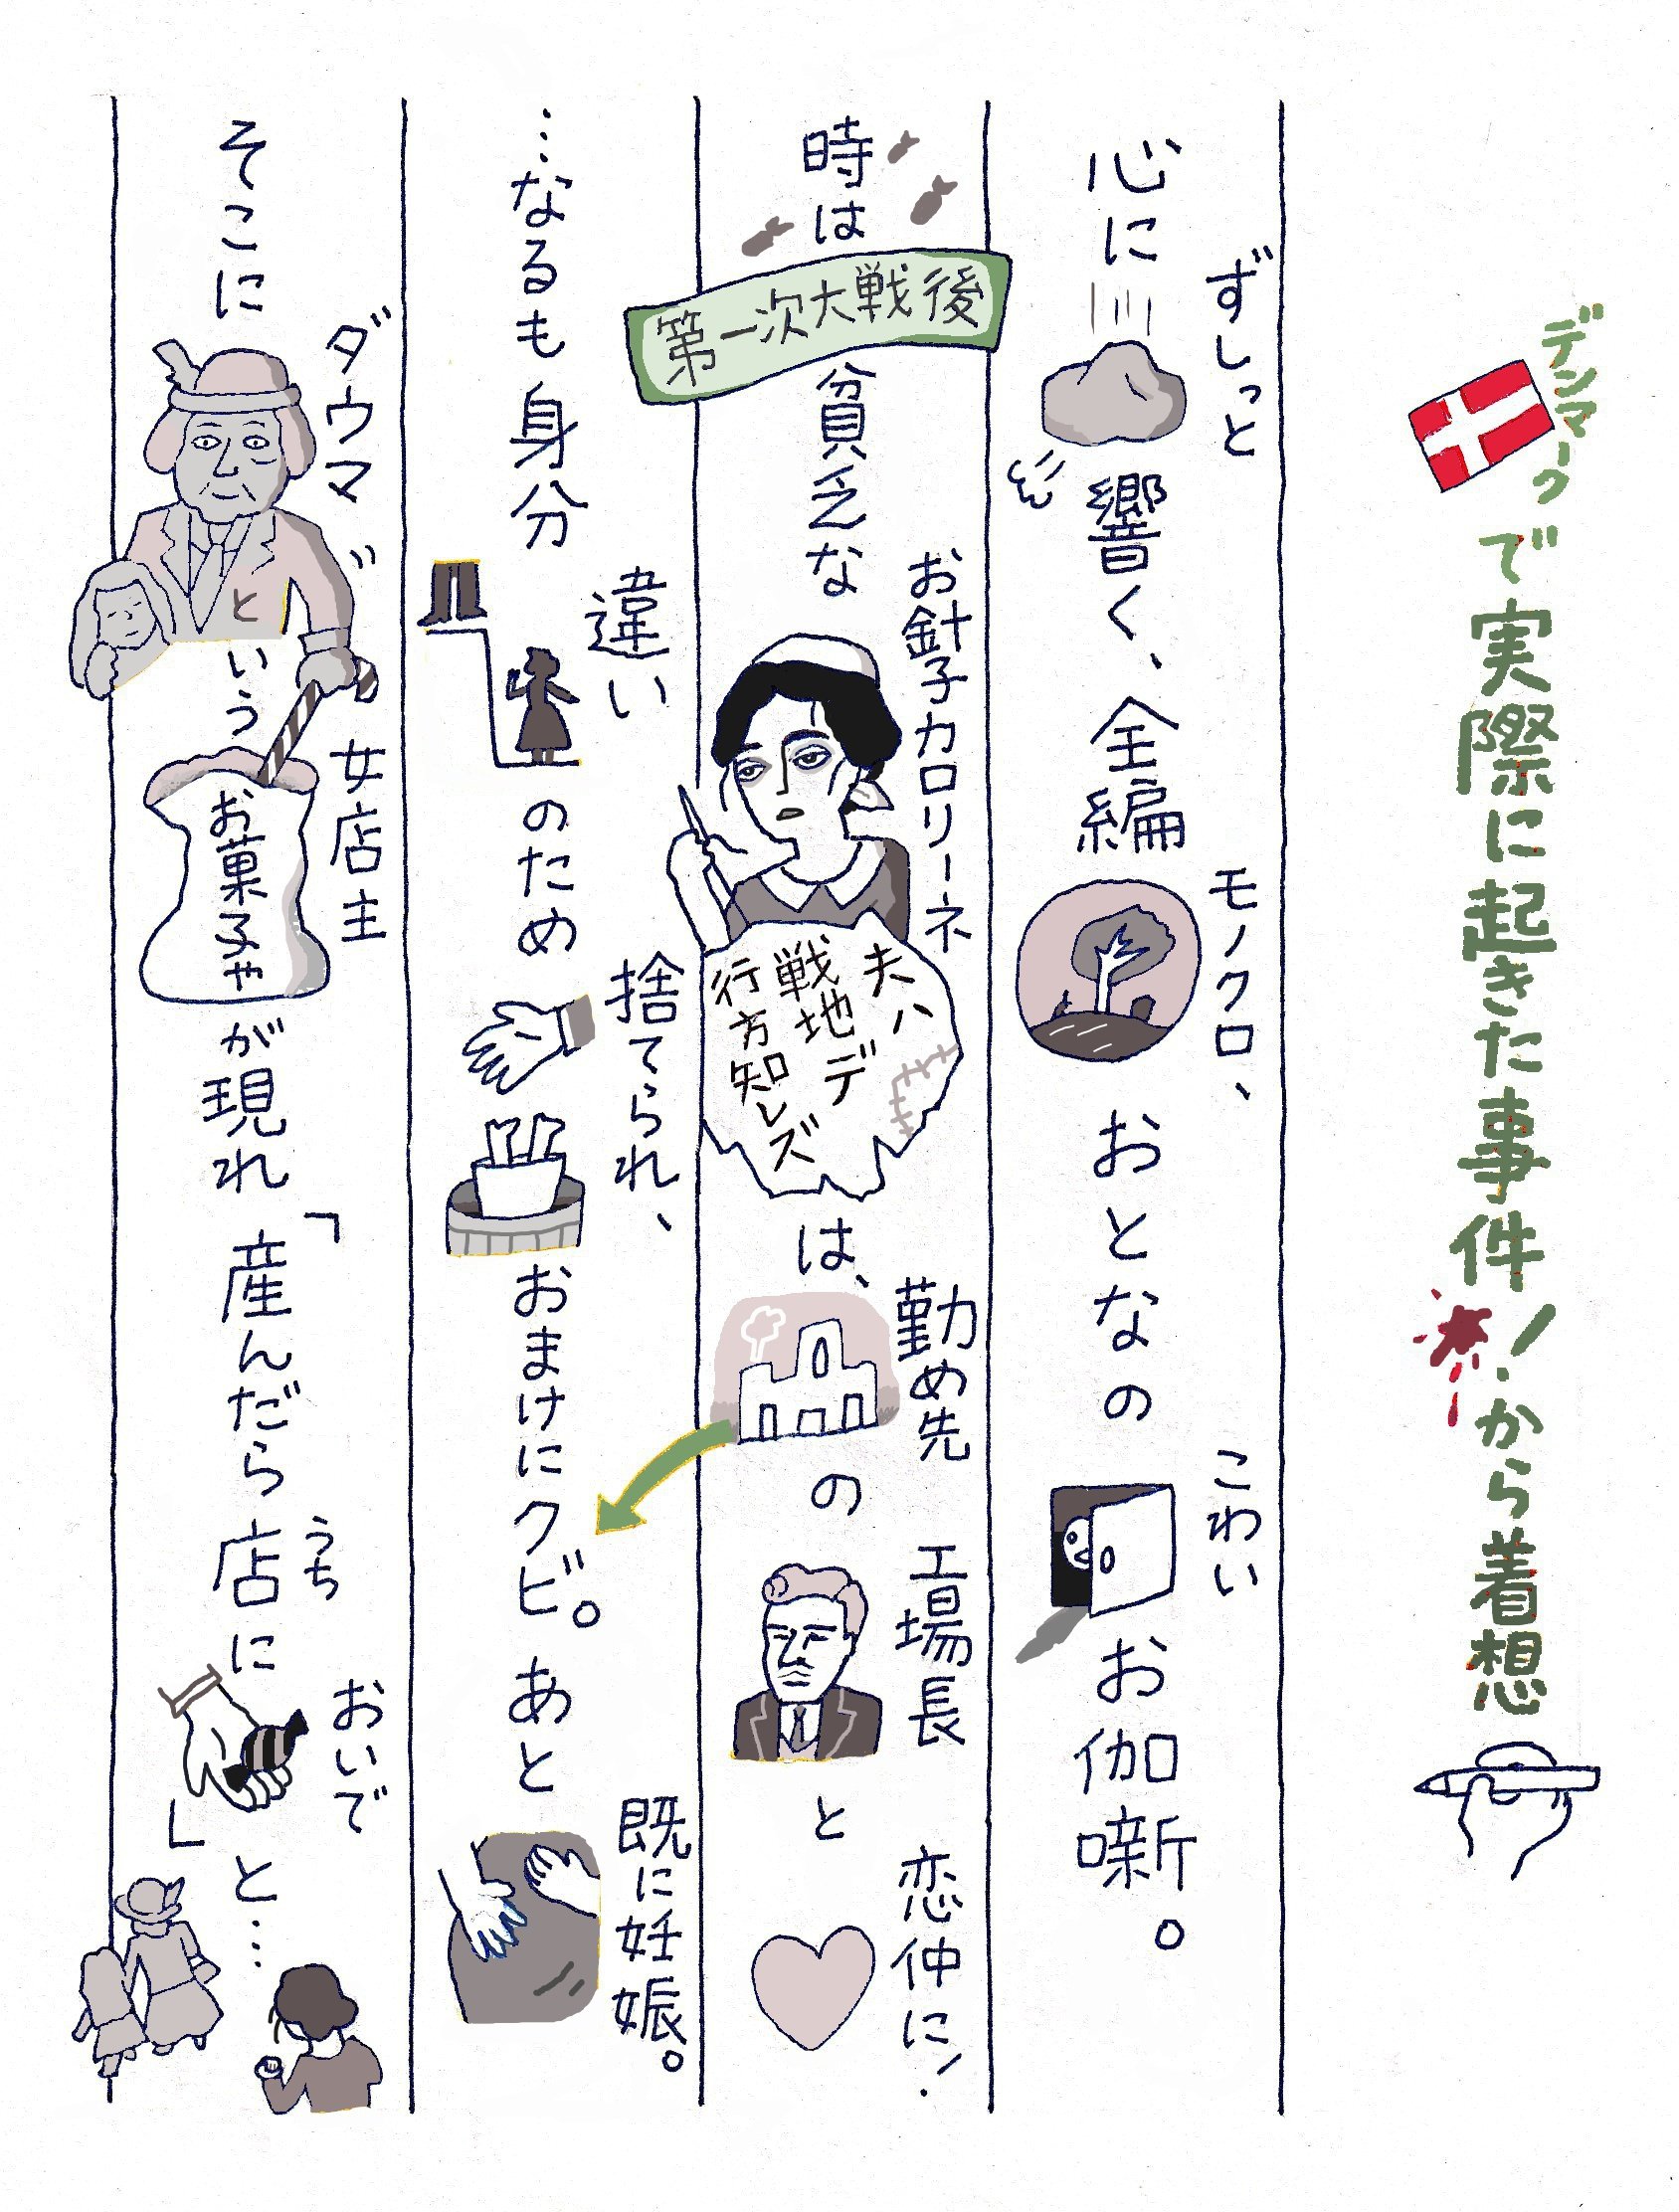 デンマークで実際に起きた事件!から着想
心にずしっと響く、全編モノクロ、おとなのこわいお伽噺。
時は第一次大戦後貧乏なお針子カロリーネ
夫ハ
戦地デ
行方知レズ
は、勤め先の工場長と恋仲に!
…なるも身分違いのため捨てられ、おまけにクビ。あと既に妊娠。
そこにダウマ゛という女店主
お菓子や
が現れ「産んだら店にうちおいで」と…